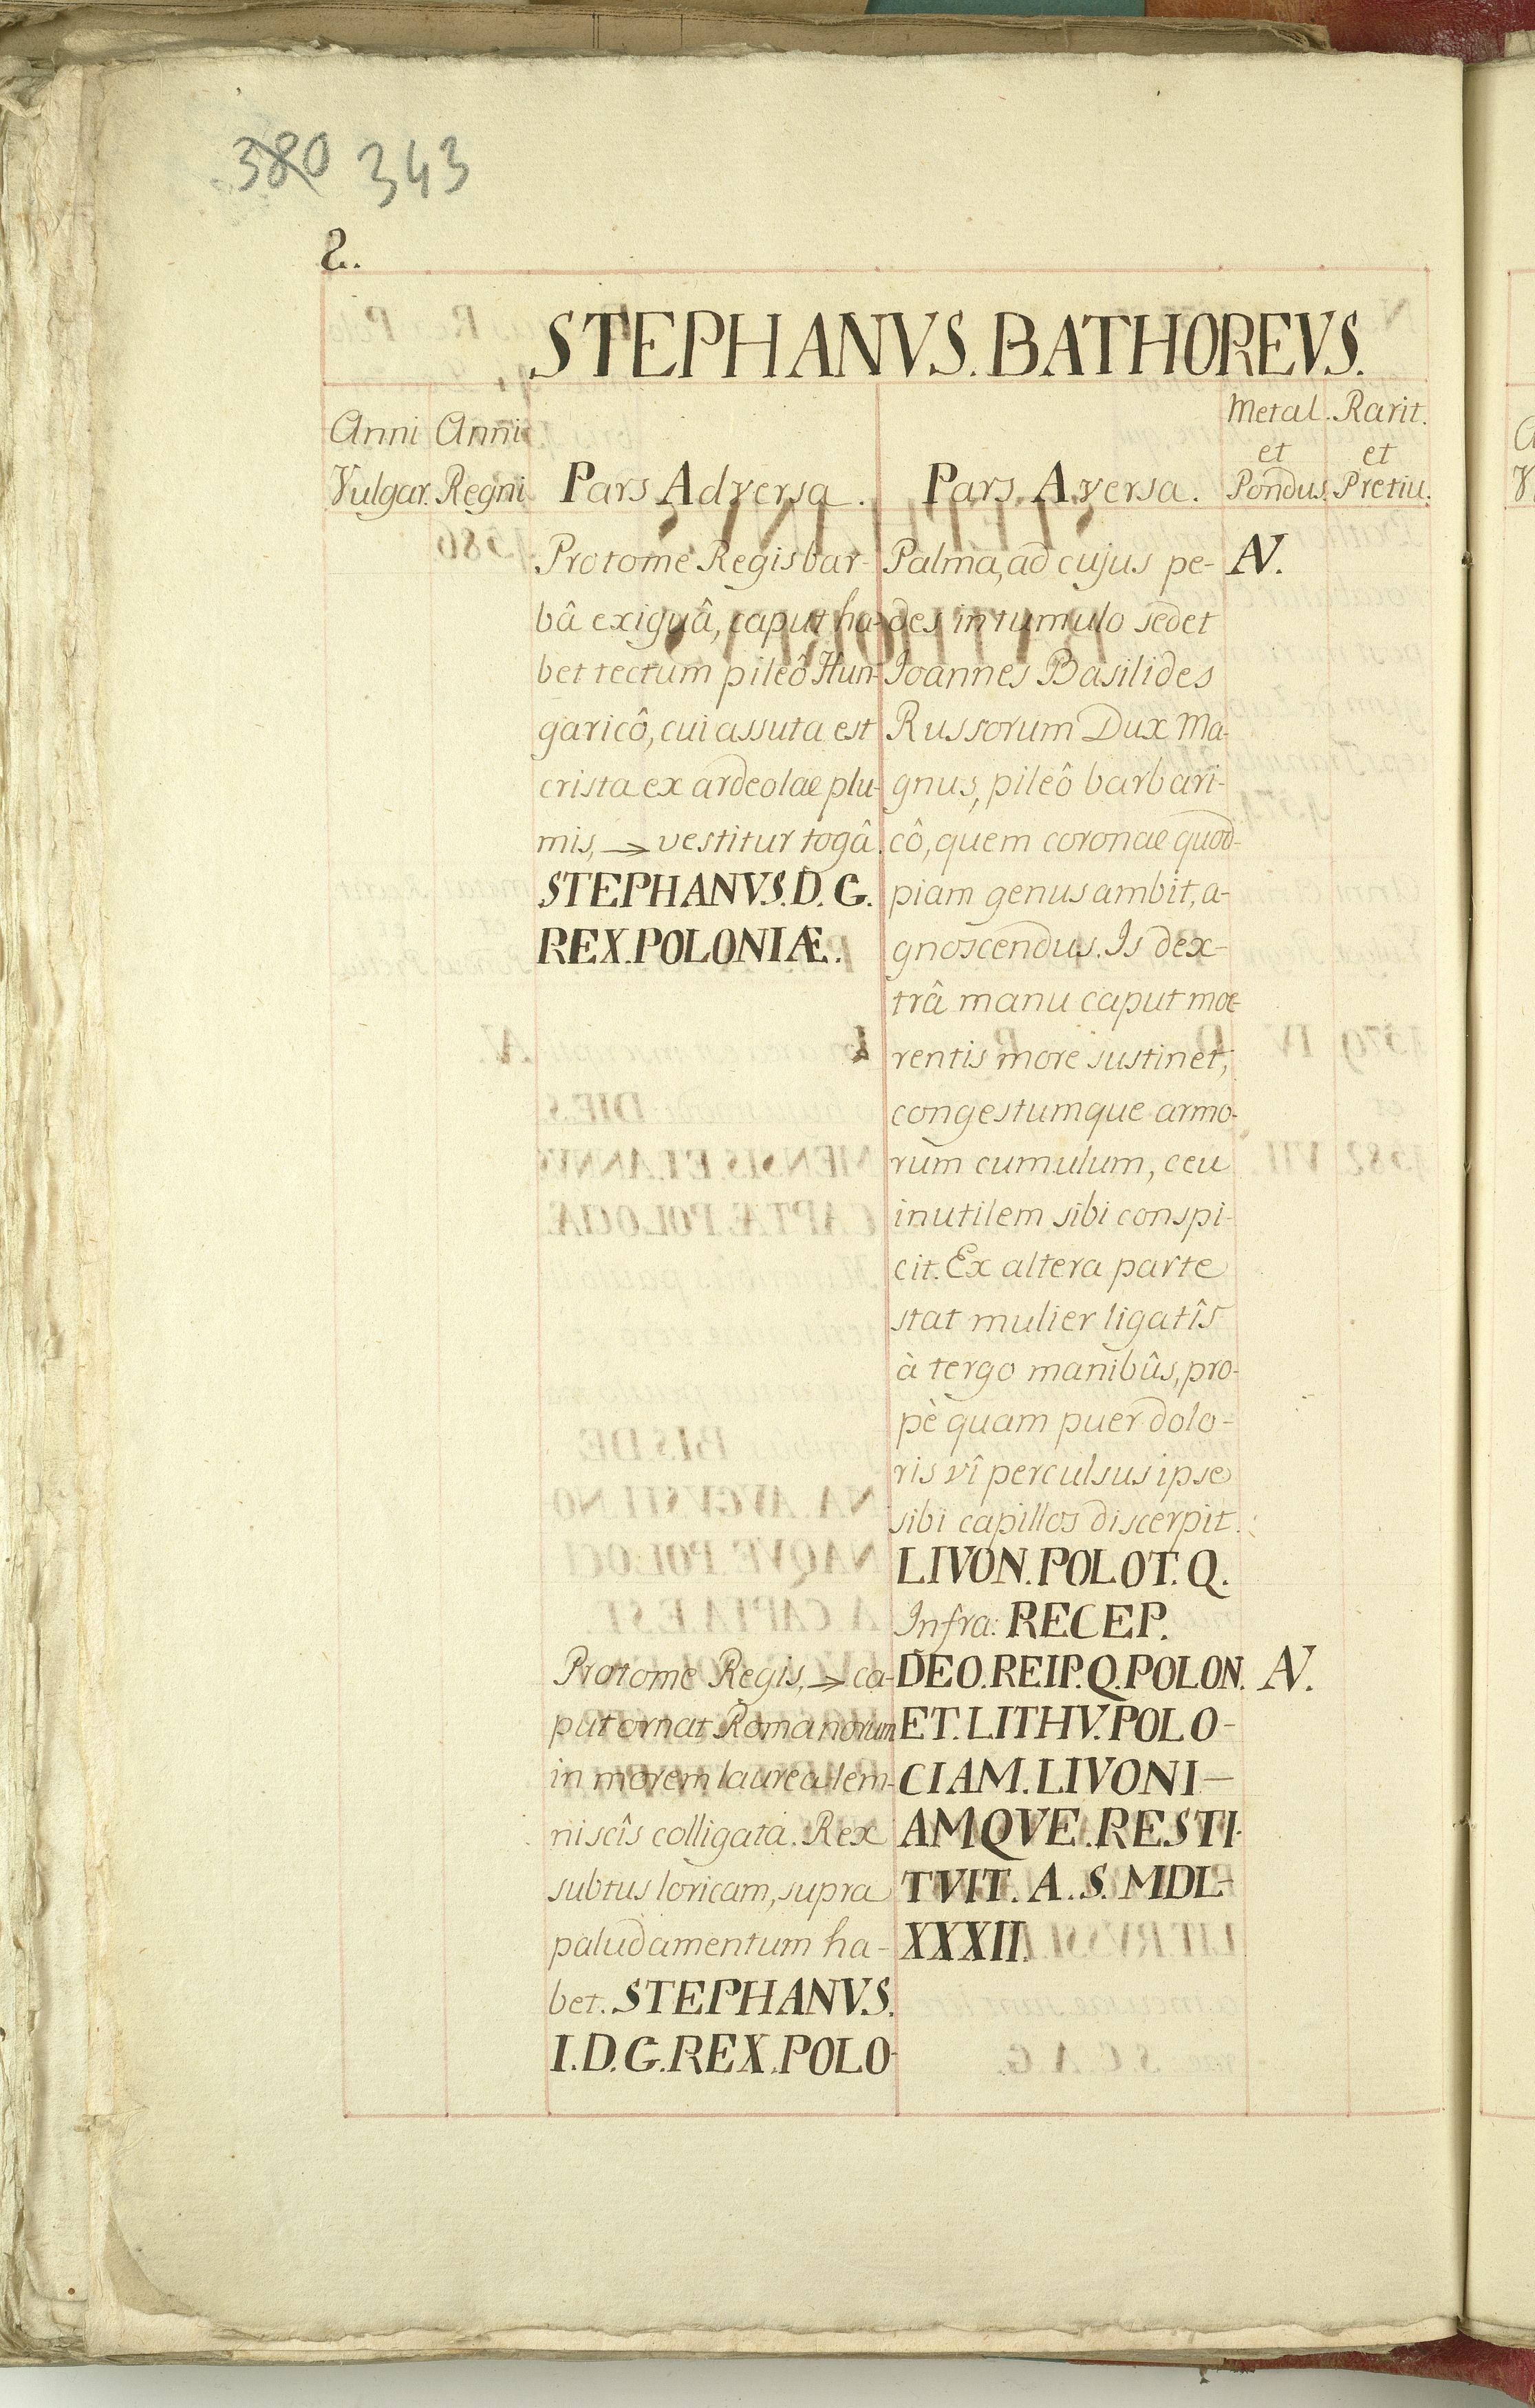 380 343
2.
STEPHANVS. BATHOREVS.
Anni Vulgar.
Anni Regni
Pars Adversa.
Pars Aversa.
Metal. et Pondus.
Rarit. et Pretiu.
Protome Regis bar-
bâ exiguâ, caput ha-
bet tectum pileô Hun-
garicô, cui assuta est
crista ex ardeolae plu-
mis, → vestitur togâ.
STEPHANVS. D. G.
REX. POLONIÆ.
Palma, ad cujus pe-
des in tumulo sedet
Ioannes Basilides
Russorum Dux Ma-
gnus, pileô barbari-
cô, quem coronae quod-
piam genus ambit, a-
gnoscendus. Is dex-
trâ manu caput moe-
rentis more sustinet,
congestumque armo-
rum cumulum, ceu
inutilem sibi conspi-
cit. Ex altera parte
stat mulier ligatîs
à tergo manibûs, pro-
pè quam puer dolo-
ris vî perculsus ipse
sibi capillos discerpit.
LIVON. POLOT. Q.
Infra: RECEP.
AV.
Protome Regis, → ca-
put ornat Romanorum
in morem laurea lem-
niscîs colligata. Rex
subtus loricam, supra
paludamentum ha-
bet. STEPHANVS.
I. D. G. REX. POLO-
DEO. REIP. Q. POLON.
ET. LITHV. POLO-
CIAM. LIVONI-
AMQVE. RESTI-
TVIT. A. S. MDL-
XXXII.
AV.